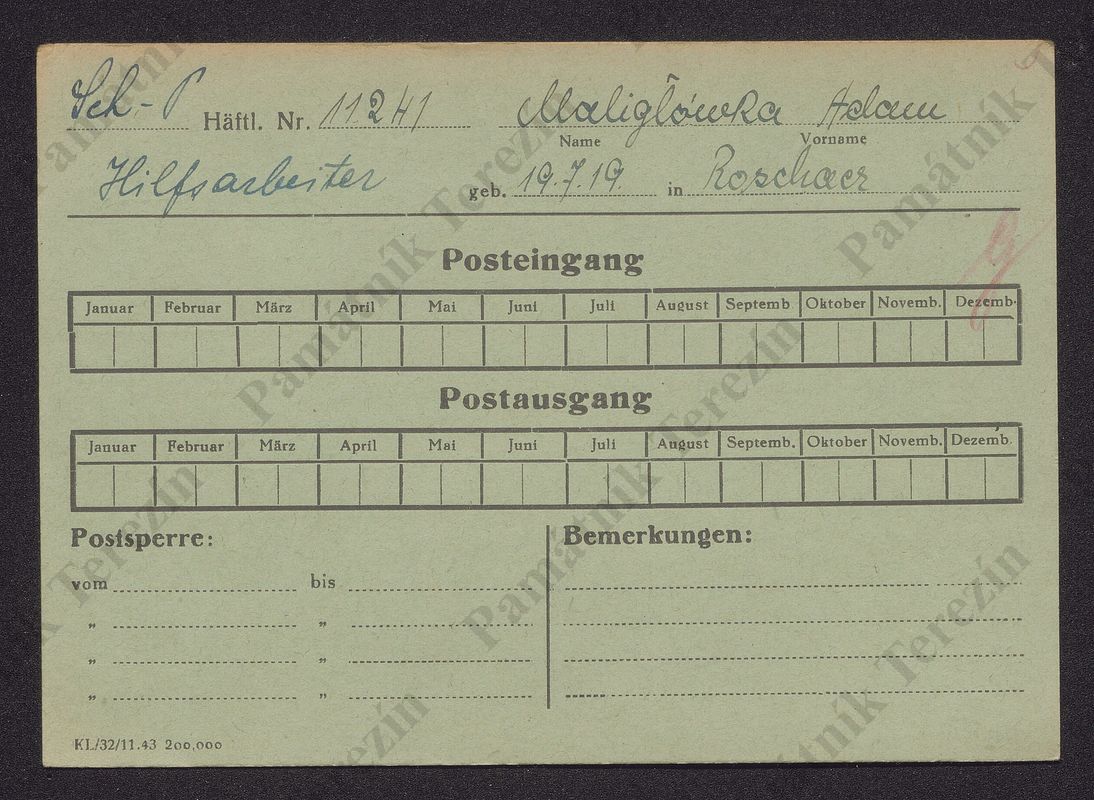 Sch.- P Häftl. Nr. 11241 Maliglówka Adam
Name Vorname
Hilfsarbeiter geb. 19.7.19. in Roschaer
Posteingang
Januar Februar März April Mai Juni Juli August Septemb Oktober Novemb. Dezemb.
Postausgang
Januar Februar März April Mai Juni Juli August Septemb. Oktober Novemb. Dezemb.
Postsperre: Bemerkungen:
vom bis
„ „
„ „
„ „
KL/32/11.43 200,000
Památník Terezín